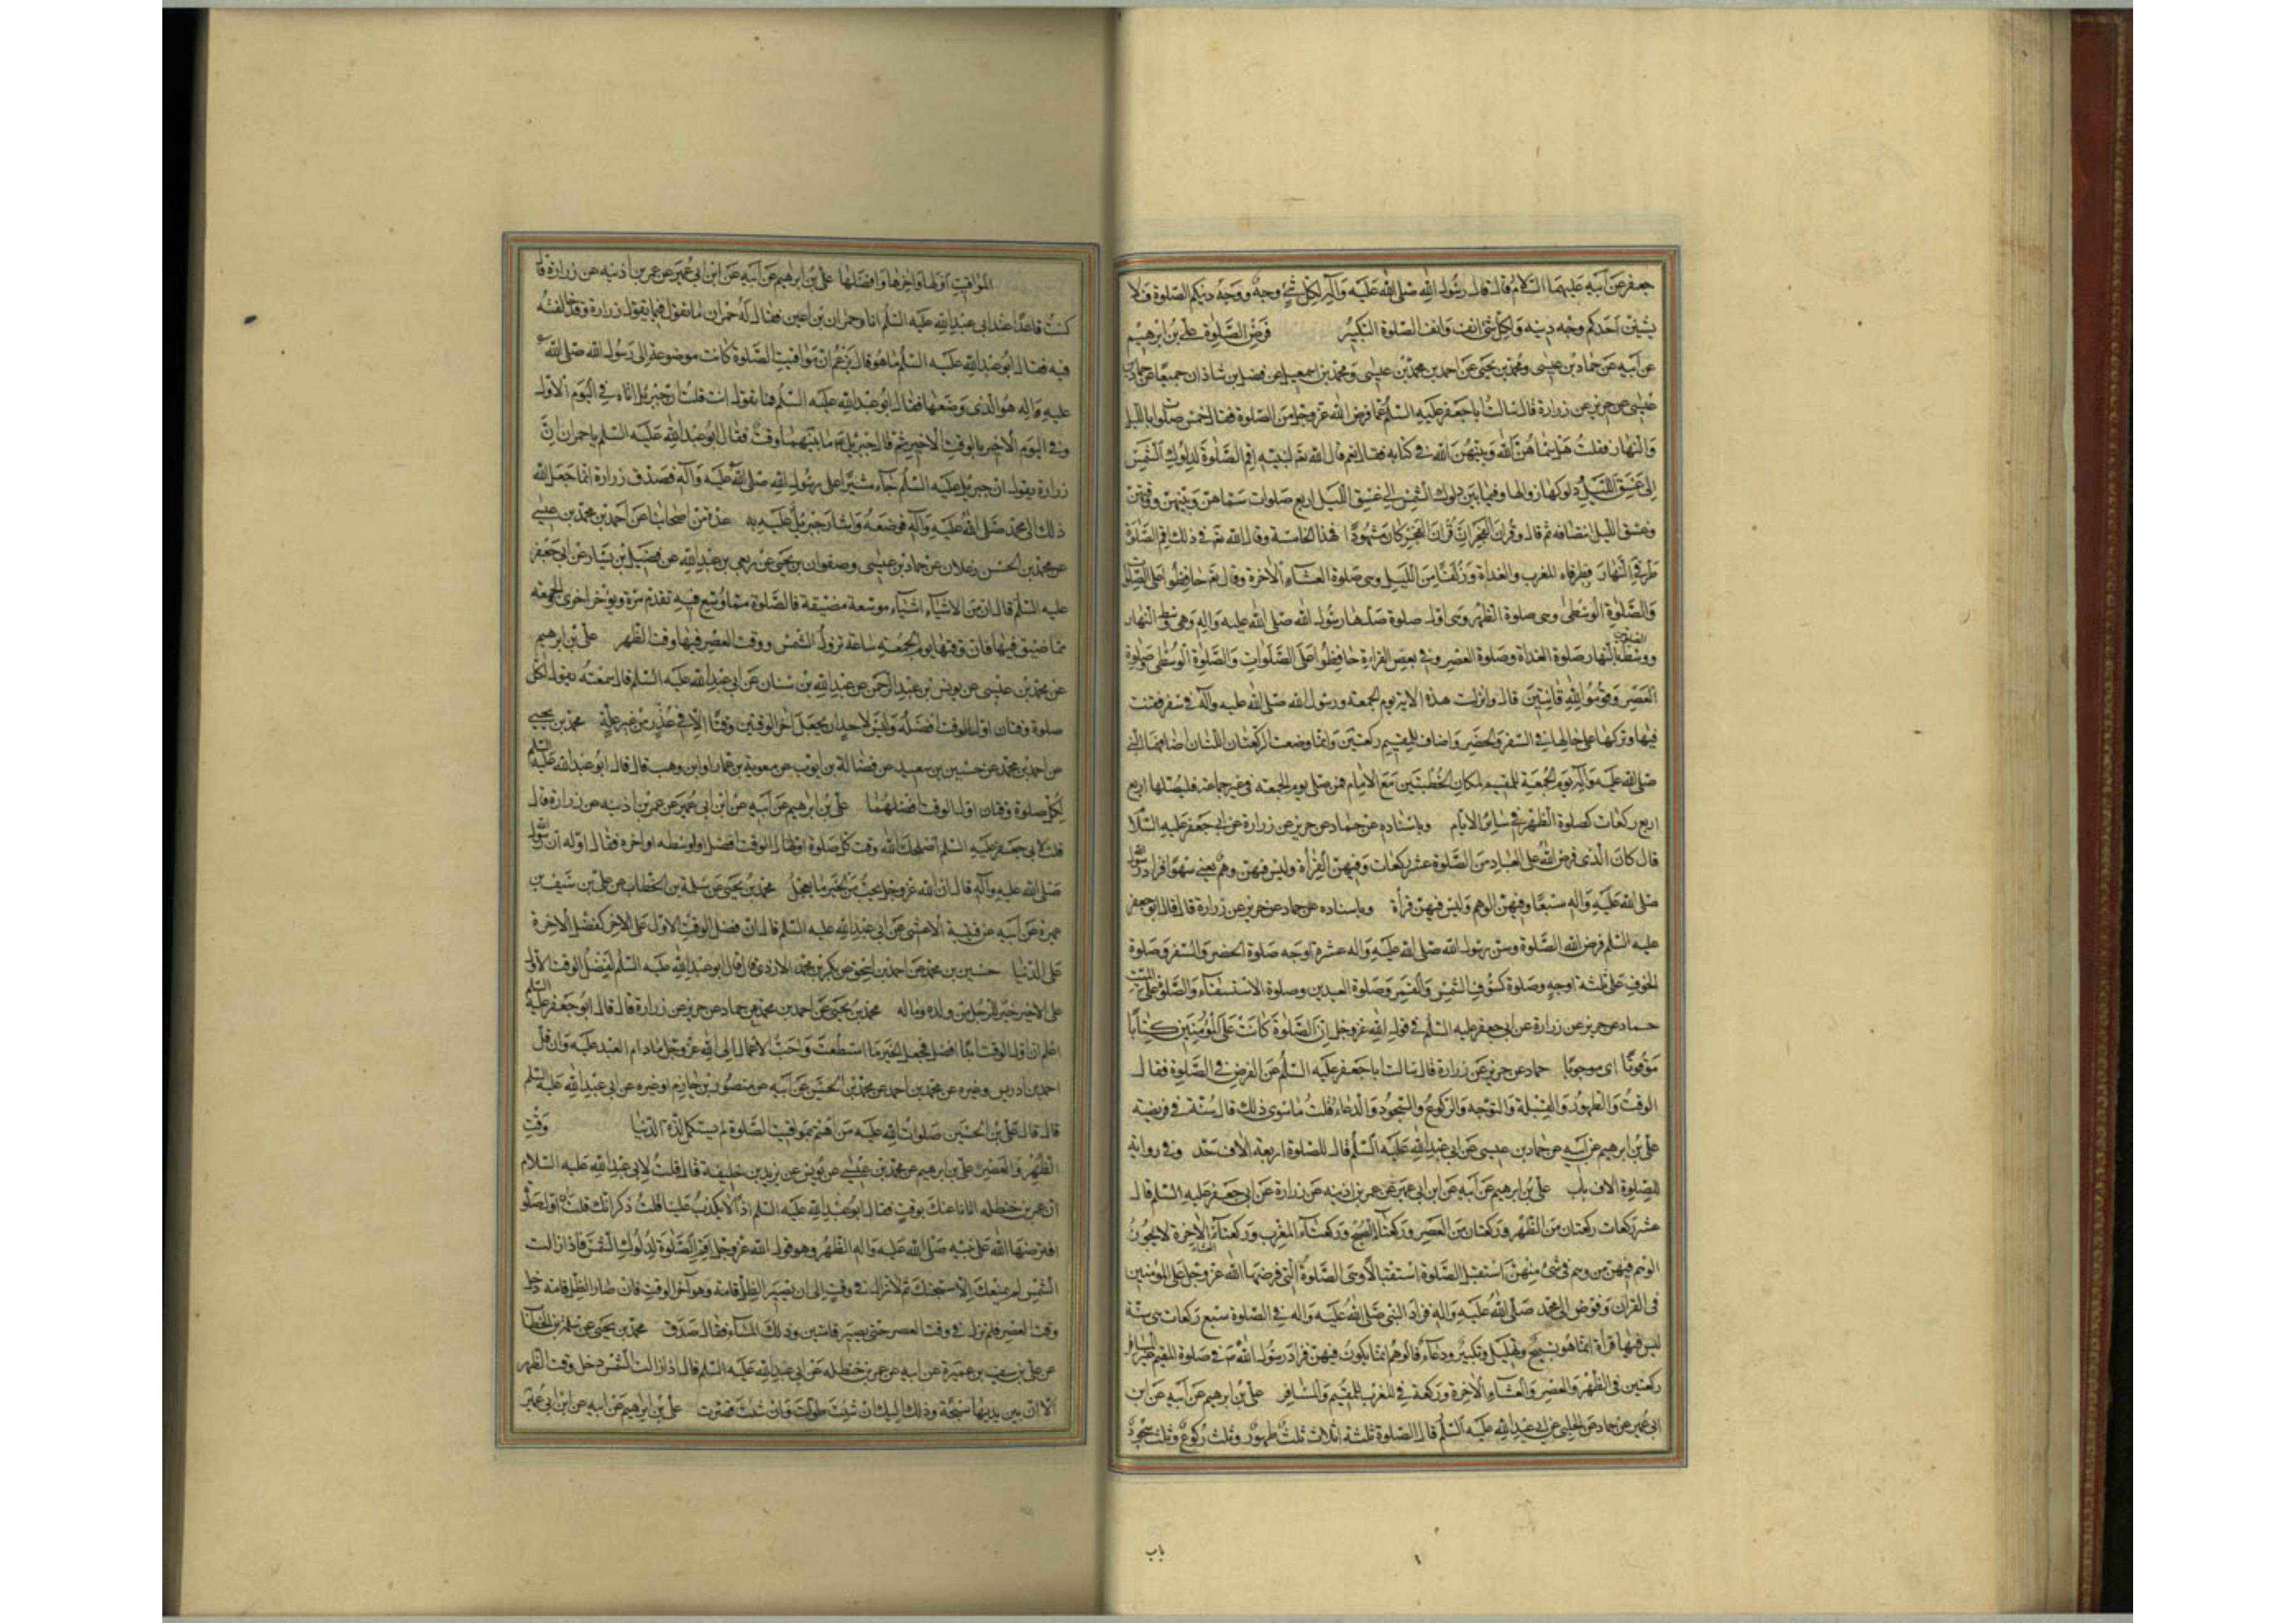 جعفر عن أبيه عليهما السلام قال قال رسول الله صلى الله عليه وآله لكل شئ وجه ووجه دينكم الصلوة فلا
يشينن احدكم وجه دينه ولكل شئ انف وانف الصلوة التكبير فرض الصلوة علي بن ابرهيم
عن أبيه عن حماد بن عيسى ومحمد بن يحيى عن احمد بن محمد بن عيسى ومحمد بن اسمعيل عن فضل بن شاذان جميعا عن حماد بن
عيسى عن حريز عن زرارة قال سالت ابا جعفر عليه السلم عما فرض الله عز وجل من الصلوة فقال خمس صلوات بالليل
والنهار فقلت هل سماهن الله وبينهن الله في كتابه فقال نعم قال الله تع لنبيه اقم الصلوة لدلوك الشمس
الى غسق الليل دلوكها زوالها وفيما بين دلوك الشمس الى غسق الليل اربع صلوات سماهن وبينهن ووقتهن
وغسق الليل انتصافه ثم قال وقرآن الفجر ان قرآن الفجر كان مشهودا فهذا الخامسة وقال الله تع في ذلك اقم الصلوة
طرفي النهار وطرفاه المغرب والغداة وزلفا من الليل وهي صلوة العشاء الاخرة وقال تع حافظوا على الصلوات
والصلوة الوسطى وهي صلوة الظهر وهي اول صلوة صلاها رسول الله صلى الله عليه واله وهي وسط النهار
ووسط الصلوتين بالنهار صلوة الغداة وصلوة العصر وفي بعض القراءة حافظوا على الصلوات والصلوة الوسطى صلوة
العصر وقوموا لله قانتين قال وانزلت هذه الاية يوم الجمعة ورسول الله صلى الله عليه وآله في سفر فقنت
فيها وتركها على حالها في السفر والحضر واضاف للمقيم ركعتين وانما وضعت الركعتان اللتان اضافهما النبي
صلى الله عليه وآله يوم الجمعة للمقيم لمكان الخطبتين مع الامام فمن صلى يوم الجمعة في غير جماعة فليصلها اربع
اربع ركعات كصلوة الظهر في ساير الايام وباسناده عن حماد عن حريز عن زرارة عن ابي جعفر عليه السلام
قال كان الذي فرض الله على العباد من الصلوة عشر ركعات وفيهن القراة وليس فيهن وهم يعني سهوا فزاد رسول الله
صلى الله عليه واله سبعا وفيهن الوهم وليس فيهن قراة وباسناده عن حماد عن حريز عن زرارة قال قال ابو جعفر
عليه السلم فرض الله الصلوة وسن رسول الله صلى الله عليه واله عشرة اوجه صلوة الحضر والسفر وصلوة
الخوف على ثلثة اوجه وصلوة كسوف الشمس والقمر وصلوة العيدين وصلوة الاستسقاء والصلوة على الميت
حماد عن حريز عن زرارة عن ابي جعفر عليه السلم في قول الله عز وجل ان الصلوة كانت على المؤمنين كتابا
موقوتا اي موجوبا حماد عن حريز عن زرارة قال سالت ابا جعفر عليه السلم عن الفرض في الصلوة فقال
الوقت والطهور والقبلة والتوجه والركوع والسجود والدعاء قلت ما سوى ذلك قال سنة في فريضة
علي بن ابرهيم عن ابيه عن حماد بن عيسى عن ابي عبد الله عليه السلم قال للصلوة اربعة الاف حد وفي رواية
للصلوة الاف باب علي بن ابرهيم عن أبيه عن ابن ابي عمير عن عمر بن اذينه عن زرارة عن ابي جعفر عليه السلم قال
عشر ركعات ركعتان من الظهر وركعتان من العصر وركعتا الصبح وركعتا المغرب وركعتا العشاء الاخرة لا يجوز
الوهم فيهن من وهم في شئ منهن استقبل الصلوة استقبالا وهي الصلوة التي فرضها الله عز وجل على المؤمنين
في القران وفوض الى محمد صلى الله عليه واله فزاد النبي صلى الله عليه واله في الصلوة سبع ركعات هي سنة
ليس فيها قراة انما هو تسبيح وتهليل وتكبير ودعاء فالوهم انما يكون فيهن فزاد رسول الله ص في صلوة المقيم غير المسافر
ركعتين في الظهر والعصر والعشاء الاخرة وركعة في المغرب للمقيم والمسافر علي بن ابرهيم عن أبيه عن ابن
ابي عمير عن حماد عن الحلبي عن ابي عبد الله عليه السلم قال الصلوة ثلثة اثلاث ثلث طهور وثلث ركوع وثلث سجود
باب
المواقيت اولها واخرها وافضلها علي بن ابرهيم عن أبيه عن ابن ابي عمير عن عمر بن اذينه عن زرارة قا
كنت قاعدا عند ابي عبد الله عليه السلم انا وحمران بن اعين فقال له حمران ما تقول فيما يقول زرارة وقد خالفته
فيه فقال ابو عبد الله عليه السلم ما هو قال يزعم ان مواقيت الصلوة كانت موضوعة الى رسول الله صلى الله
عليه واله هو الذي وضعها فقال ابو عبد الله عليه السلم فما تقول انت قلت ان جبرئيل اتاه في اليوم الاول
وفي اليوم الاخير بالوقت الاخير ثم قال جبرئيل ع ما بينهما وقت فقال ابو عبد الله عليه السلم يا حمران ان
زرارة يقول ان جبرئيل عليه السلم جاء مشيرا على رسول الله صلى الله عليه وآله فصدق زرارة انما جعل الله
ذلك الى محمد صلى الله عليه وآله فوضعه واشار جبرئيل عليه به عدة من اصحابنا عن احمد بن محمد بن عيسى
عن محمد بن الحسن زعلان عن حماد بن عيسى وصفوان بن يحيى عن ربعي بن عبد الله عن فضيل بن يسار عن ابي جعفر
عليه السلم قال ان من الاشياء اشياء موسعة مضيقة فالصلوة مما وسع فيه تقدم مرة ويوخر اخرى والجمعة
مما ضيق فيها فان وقتها يوم الجمعة ساعة تزول الشمس ووقت العصر فيها وقت الظهر علي بن ابرهيم
عن محمد بن عيسى عن يونس بن عبد الرحمن عن عبد الله بن سنان عن ابي عبد الله عليه السلم قال سمعته يقول لكل
صلوة وقتان اول الوقت افضله وليس لاحد ان يجعل اخر الوقتين وقتا الا في عذر من غير علة محمد بن يحيى
عن احمد بن محمد عن حسين بن سعيد عن فضالة بن ايوب عن معوية بن عمار او ابن وهب قال قال ابو عبد الله عليه السلم
لكل صلوة وقتان اول الوقت افضلهما علي بن ابرهيم عن أبيه عن ابن ابي عمير عن عمر بن اذينه عن زرارة قال
قلت لابي جعفر عليه السلم اصلحك الله وقت كل صلوة اول الوقت افضل او وسطه او اخره فقال اوله ان رسول الله
صلى الله عليه وآله قال ان الله عز وجل يحب من الخير ما يعجل محمد بن يحيى عن سلمة بن الخطاب عن علي بن سيف بن
عميرة عن أبيه عن قتيبة الاعشى عن ابي عبد الله عليه السلم قال ان فضل الوقت الاول على الاخر كفضل الاخرة
على الدنيا حسين بن محمد عن احمد بن اسحق عن بكر بن محمد الازدي قال قال ابو عبد الله عليه السلم لفضل الوقت الاول
على الاخير خير للرجل من ولده وماله محمد بن يحيى عن احمد بن محمد عن حماد عن حريز عن زرارة قال قال ابو جعفر عليه السلم
اعلم ان اول الوقت ابدا افضل فعجل الخير ما استطعت واحب الاعمال الى الله عز وجل ما دام العبد عليه وان قل
احمد بن ادريس وغيره عن محمد بن احمد عن محمد بن الحسين عن أبيه عن منصور بن حازم او غيره عن ابي عبد الله عليه السلم
قال قال علي بن الحسين صلوات الله عليه من اهتم بمواقيت الصلوة لم يستكمل لذة الدنيا وقت
الظهر والعصر علي بن ابرهيم عن محمد بن عيسى عن يونس عن يزيد بن خليفة قال قلت لابي عبد الله عليه السلام
ان عمر بن حنظله اتانا عنك بوقت فقال ابو عبد الله عليه السلم اذا لا يكذب علينا قلت ذكر انك قلت ان اول صلوة
افترضها الله على نبيه صلى الله عليه واله الظهر وهو قول الله عز وجل اقم الصلوة لدلوك الشمس فاذا زالت
الشمس لم يمنعك الا سبحتك ثم لا تزال في وقت الى ان يصير الظل قامة وهو آخر الوقت فان صار الظل قامة دخل
وقت العصر فلم تزل في وقت العصر حتى يصير قامتين وذلك المساء فقال صدق محمد بن يحيى عن سلمة بن الخطاب
عن علي بن سيف بن عميرة عن ابيه عن عمر بن حنظله عن ابي عبد الله عليه السلم قال اذا زالت الشمس دخل وقت الظهر
الا ان بين يديها سبحة وذلك اليك ان شئت طولت وان شئت قصرت علي بن ابرهيم عن ابيه عن ابن ابي عمير